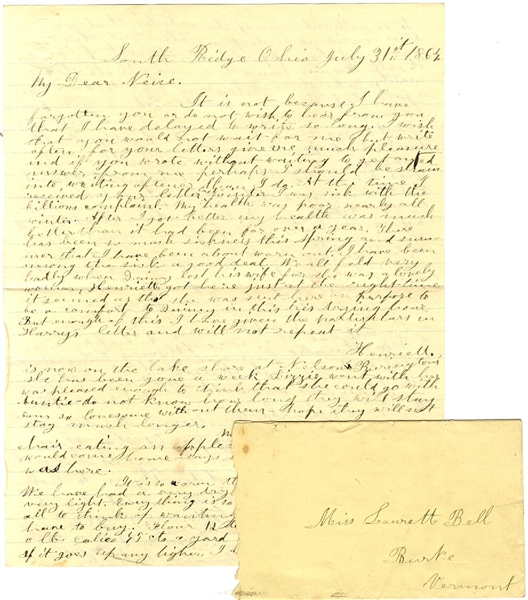 South Ridge Ohio July 31st 1864
My Dear Neice.
It is not because I have
forgotten you or do not wish to hear from you
that I have delayed to write so long. I wish
that you would not wait for me but write
often for your letters give me much pleasure
and if you wrote without waiting to get an
answer from me perhaps I should be
into writing oftener than I do. At the time I
received your letter last winter I was sick with the
billious complaint. My health was poor nearly all
winter. After I got better my health was much
better than it had been for over a year. There
has been so much sickness this Spring and sum-
mer that I have been about worn out. I have been
a good deal. We all felt very
badly when lost his wife for she was a lovely
woman, Henriett got here just at the right time
it seemed as tho' she was sent here on purpose to
be a comfort to in this his trying hour
But enough of this I have given the particulars in
Harrys letter and will not repeat it
Henriett
is now on the lake shore at Nelson
she has been gone a week. Lizzie went with her
was pleased enough to think that she could go with
Auntie do not know how long they will stay
am so lonesome without them hope they will not
stay much longer.
chair eating an apple
would come home says
was here.
It is so warm
We have had a very dry
very light. Every thing is so
all to think of wanting
have to buy. Flour 12
a lb. calico 45 cts a yard
if it goes up any higher I
Miss Laurett Bell
Burke
Vermont